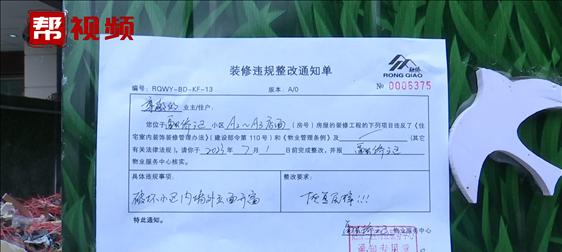 帮视频
融侨
RONG QIAO
装修违规整改通知单
编号：RQWY-BD-KF-13 版本：A/0 № 0006375
业主/住户：
您位于 小区 A2～A3店面（房号）房屋的装修工程的下列项目违反了《住
宅室内装饰装修管理办法》（建设部令第110号）和《物业管理条例》及 （其它
有关法律法规），请你于 2023年7月1日前完成整改，并报
物业服务中心核实。
具体违规事项： 整改要求：
破坏小区内墙外立面开窗 恢复原样!!!
特此通知。 物业服务中心